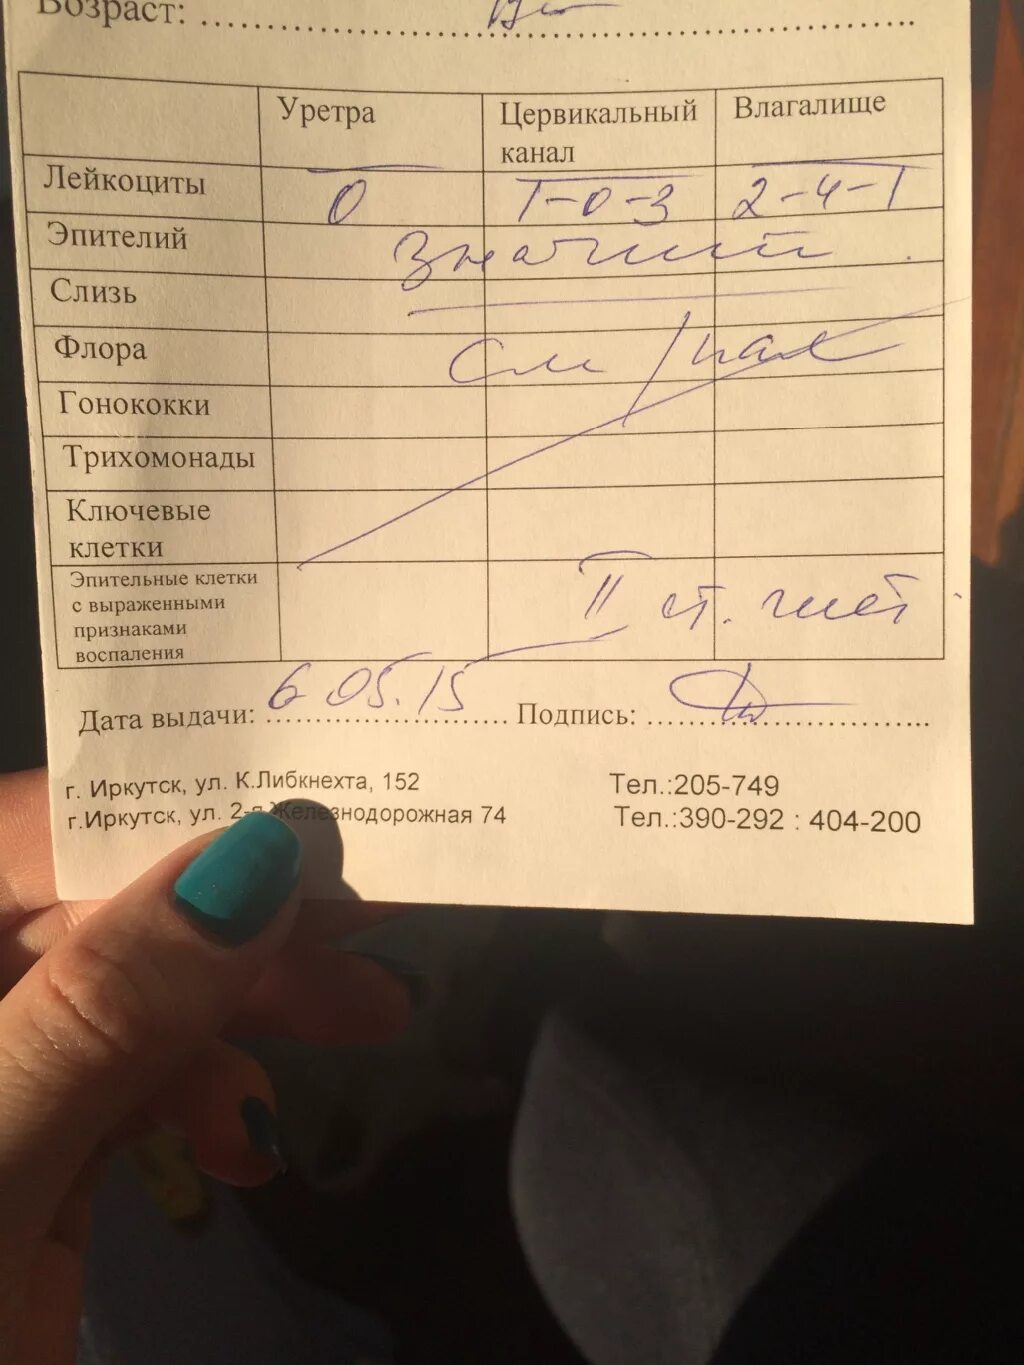 Возраст:
Уретра Цервикальный канал Влагалище
Лейкоциты 0 1-0-3 2-4-1
Эпителий
Слизь
Флора см/пал
Гонококки
Трихомонады
Ключевые клетки
Эпительные клетки с выраженными признаками воспаления II ст. чист
Дата выдачи: 6 05.15 Подпись:
г. Иркутск, ул. К.Либкнехта, 152 Тел.:205-749
г.Иркутск, ул. 2-я Железнодорожная 74 Тел.:390-292 : 404-200